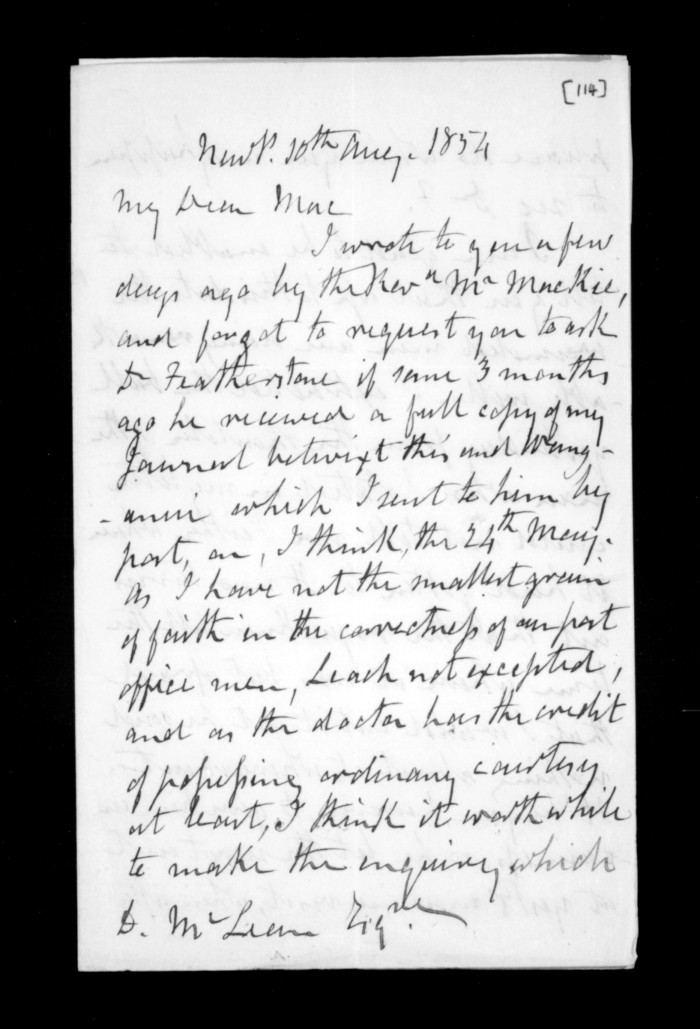 [114]
NewP. 10th Aug. 1854
My Dear Mac
I wrote to you a few
days ago by the Revd Mr MacKie,
and forgot to request you to ask
Dr Featherstone if some 3 months
ago he received a full copy of my
Journal betwixt this and Wang-
-anui which I sent to him by
post, on, I think, the 24th May.
As I have not the smallest grain
of faith in the correctness of our post
office men, Leach not excepted,
and as the doctor has the credit
of possessing ordinary courtesy
at least, I think it worth while
to make the enquiry, which
D. McLean Esqre